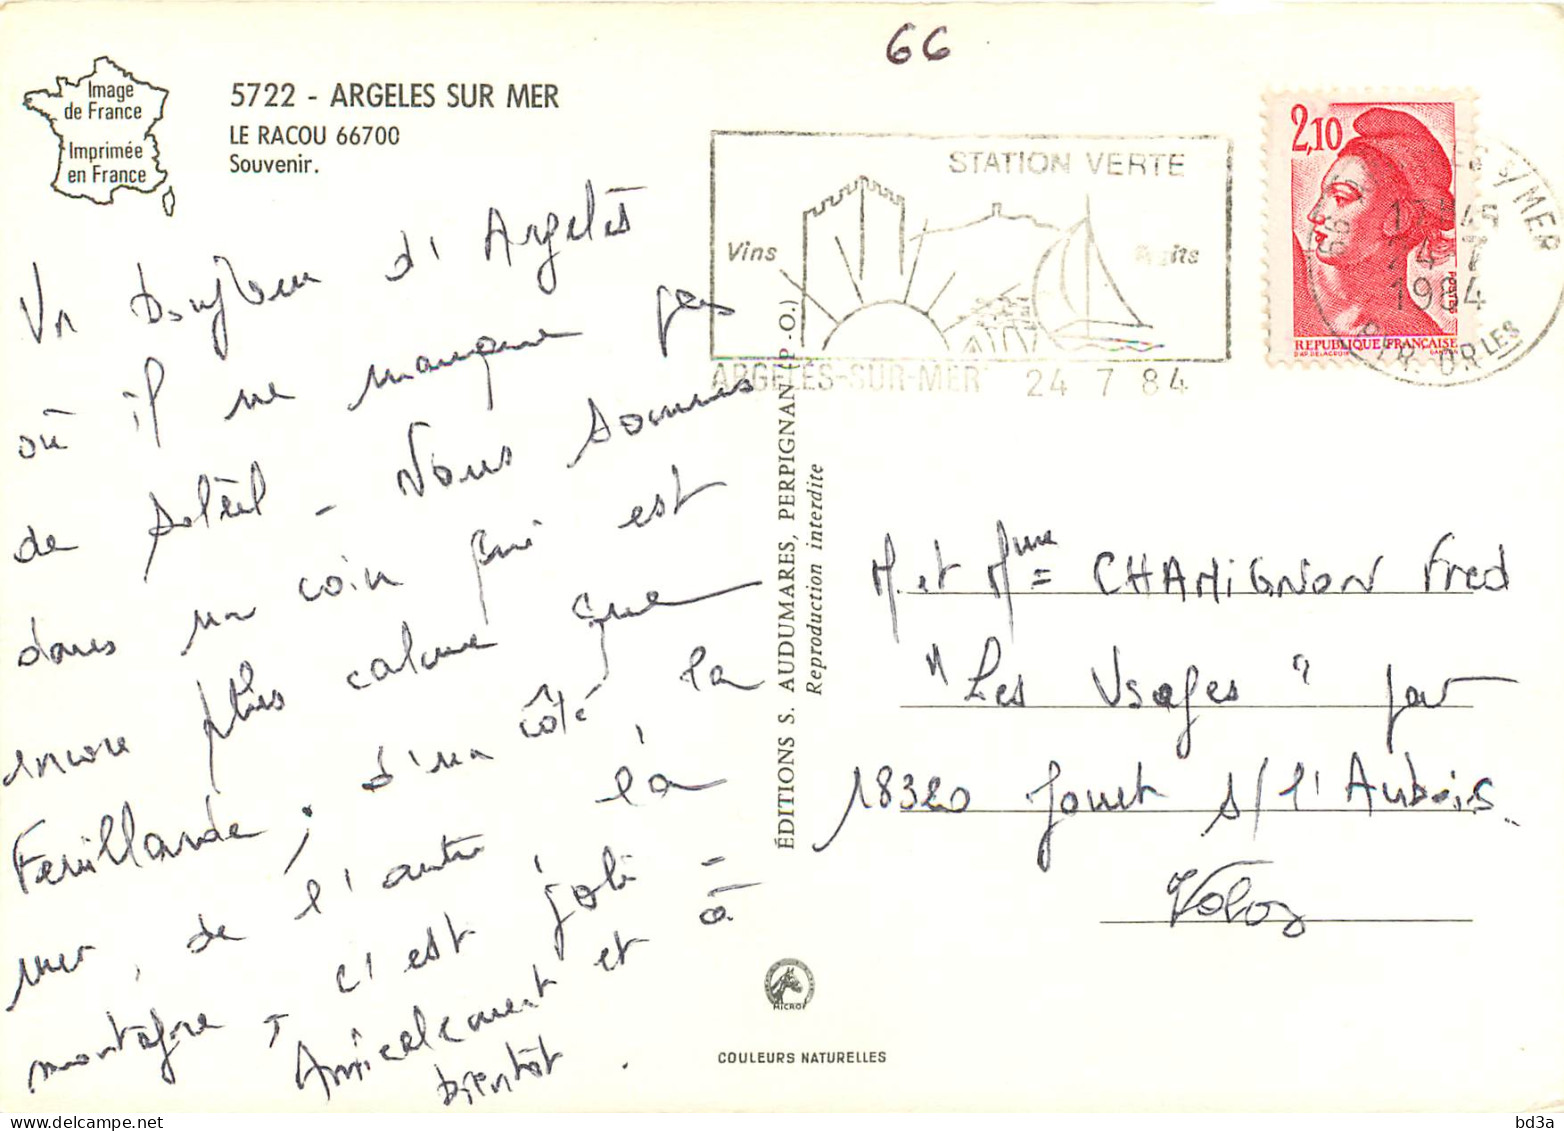 66
Image
de France
Imprimée
en France
5722 - ARGELES SUR MER
LE RACOU 66700
Souvenir.
Un bonjour d'Argelès
où il ne manque pas
de soleil - Nous sommes
dans un coin qui est
encore plus calme que
Feuillande, d'un côté la
mer, de l'autre, là
montagne, c'est joli -
Amicalement et à
bientôt.
STATION VERTE
Vins
ARGELES-SUR-MER 24 7 84
2,10
POSTES
REPUBLIQUE FRANÇAISE
D'AP. DELACROIX GANDON
17H45
24-7
1984
PYR. ORLES
ÉDITIONS S. AUDUMARES, PERPIGNAN (P.-O.)
Reproduction interdite
M. et Mme = CHAMIGNON Fred
"Les Usages" par
18320 Jouet s/l'Aubois.
MICRO
COULEURS NATURELLES
bd3a